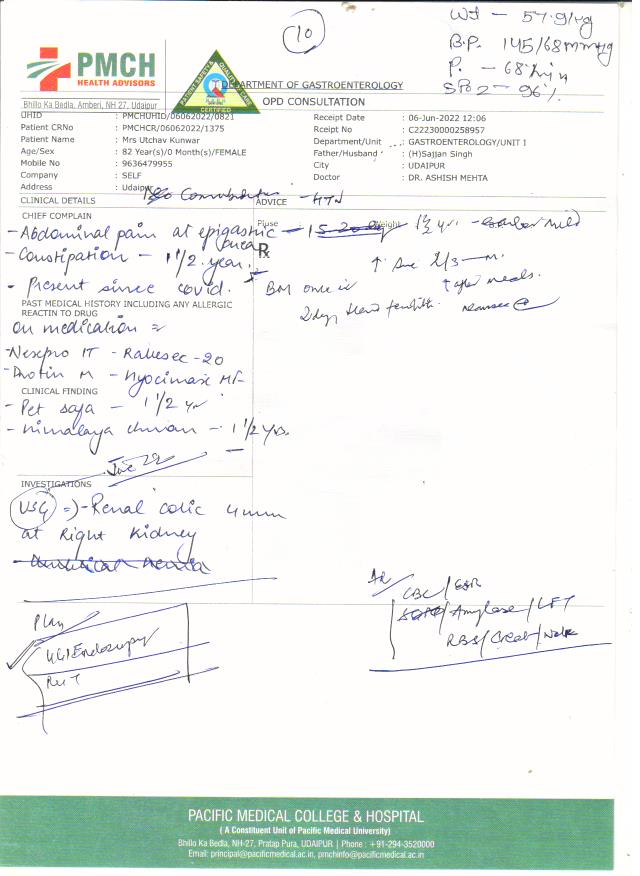 10
Wt - 57.9/kg
B.P. 145/68 mmHg
P. - 68/min
SPO2 - 96%
PMCH
HEALTH ADVISORS
PATIENT SAFETY & QUALITY OF CARE
CERTIFIED
DEPARTMENT OF GASTROENTEROLOGY
Bhillo Ka Bedla, Amberi, NH 27, Udaipur
OPD CONSULTATION
UHID : PMCHUHID/06062022/0821
Receipt Date : 06-Jun-2022 12:06
Patient CRNo : PMCHCR/06062022/1375
Rceipt No : C22230000258957
Patient Name : Mrs Utchav Kunwar
Department/Unit : GASTROENTEROLOGY/UNIT I
Age/Sex : 82 Year(s)/0 Month(s)/FEMALE
Father/Husband : (H)Sajjan Singh
Mobile No : 9636479955
City : UDAIPUR
Company : SELF
Doctor : DR. ASHISH MEHTA
Address : Udaipur
CLINICAL DETAILS
ADVICE - HTN
CHIEF COMPLAIN
Pluse
Weight
- Abdominal pain at epigastric area
- 15-20 day 1 1/2 yr.
Rx
- Constipation - 1 1/2 year.
- Present since covid.
BM once in
↑ after meals.
PAST MEDICAL HISTORY INCLUDING ANY ALLERGIC
REACTIN TO DRUG
On medication =
- Nexpro IT - Rabesec-20
CLINICAL FINDING
- Pet safa - 1 1/2 yr
- Himalaya churan - 1 1/2 yrs.
INVESTIGATIONS
USG => - Renal colic 4mm
at Right Kidney
CBC/ESR
Amylase/LFT
RBS/Creat/
Plan
UGI Endoscopy
PACIFIC MEDICAL COLLEGE & HOSPITAL
( A Constituent Unit of Pacific Medical University)
Bhillo Ka Bedla, NH-27, Pratap Pura, UDAIPUR | Phone : +91-294-3520000
Email: principal@pacificmedical.ac.in, pmchinfo@pacificmedical.ac.in